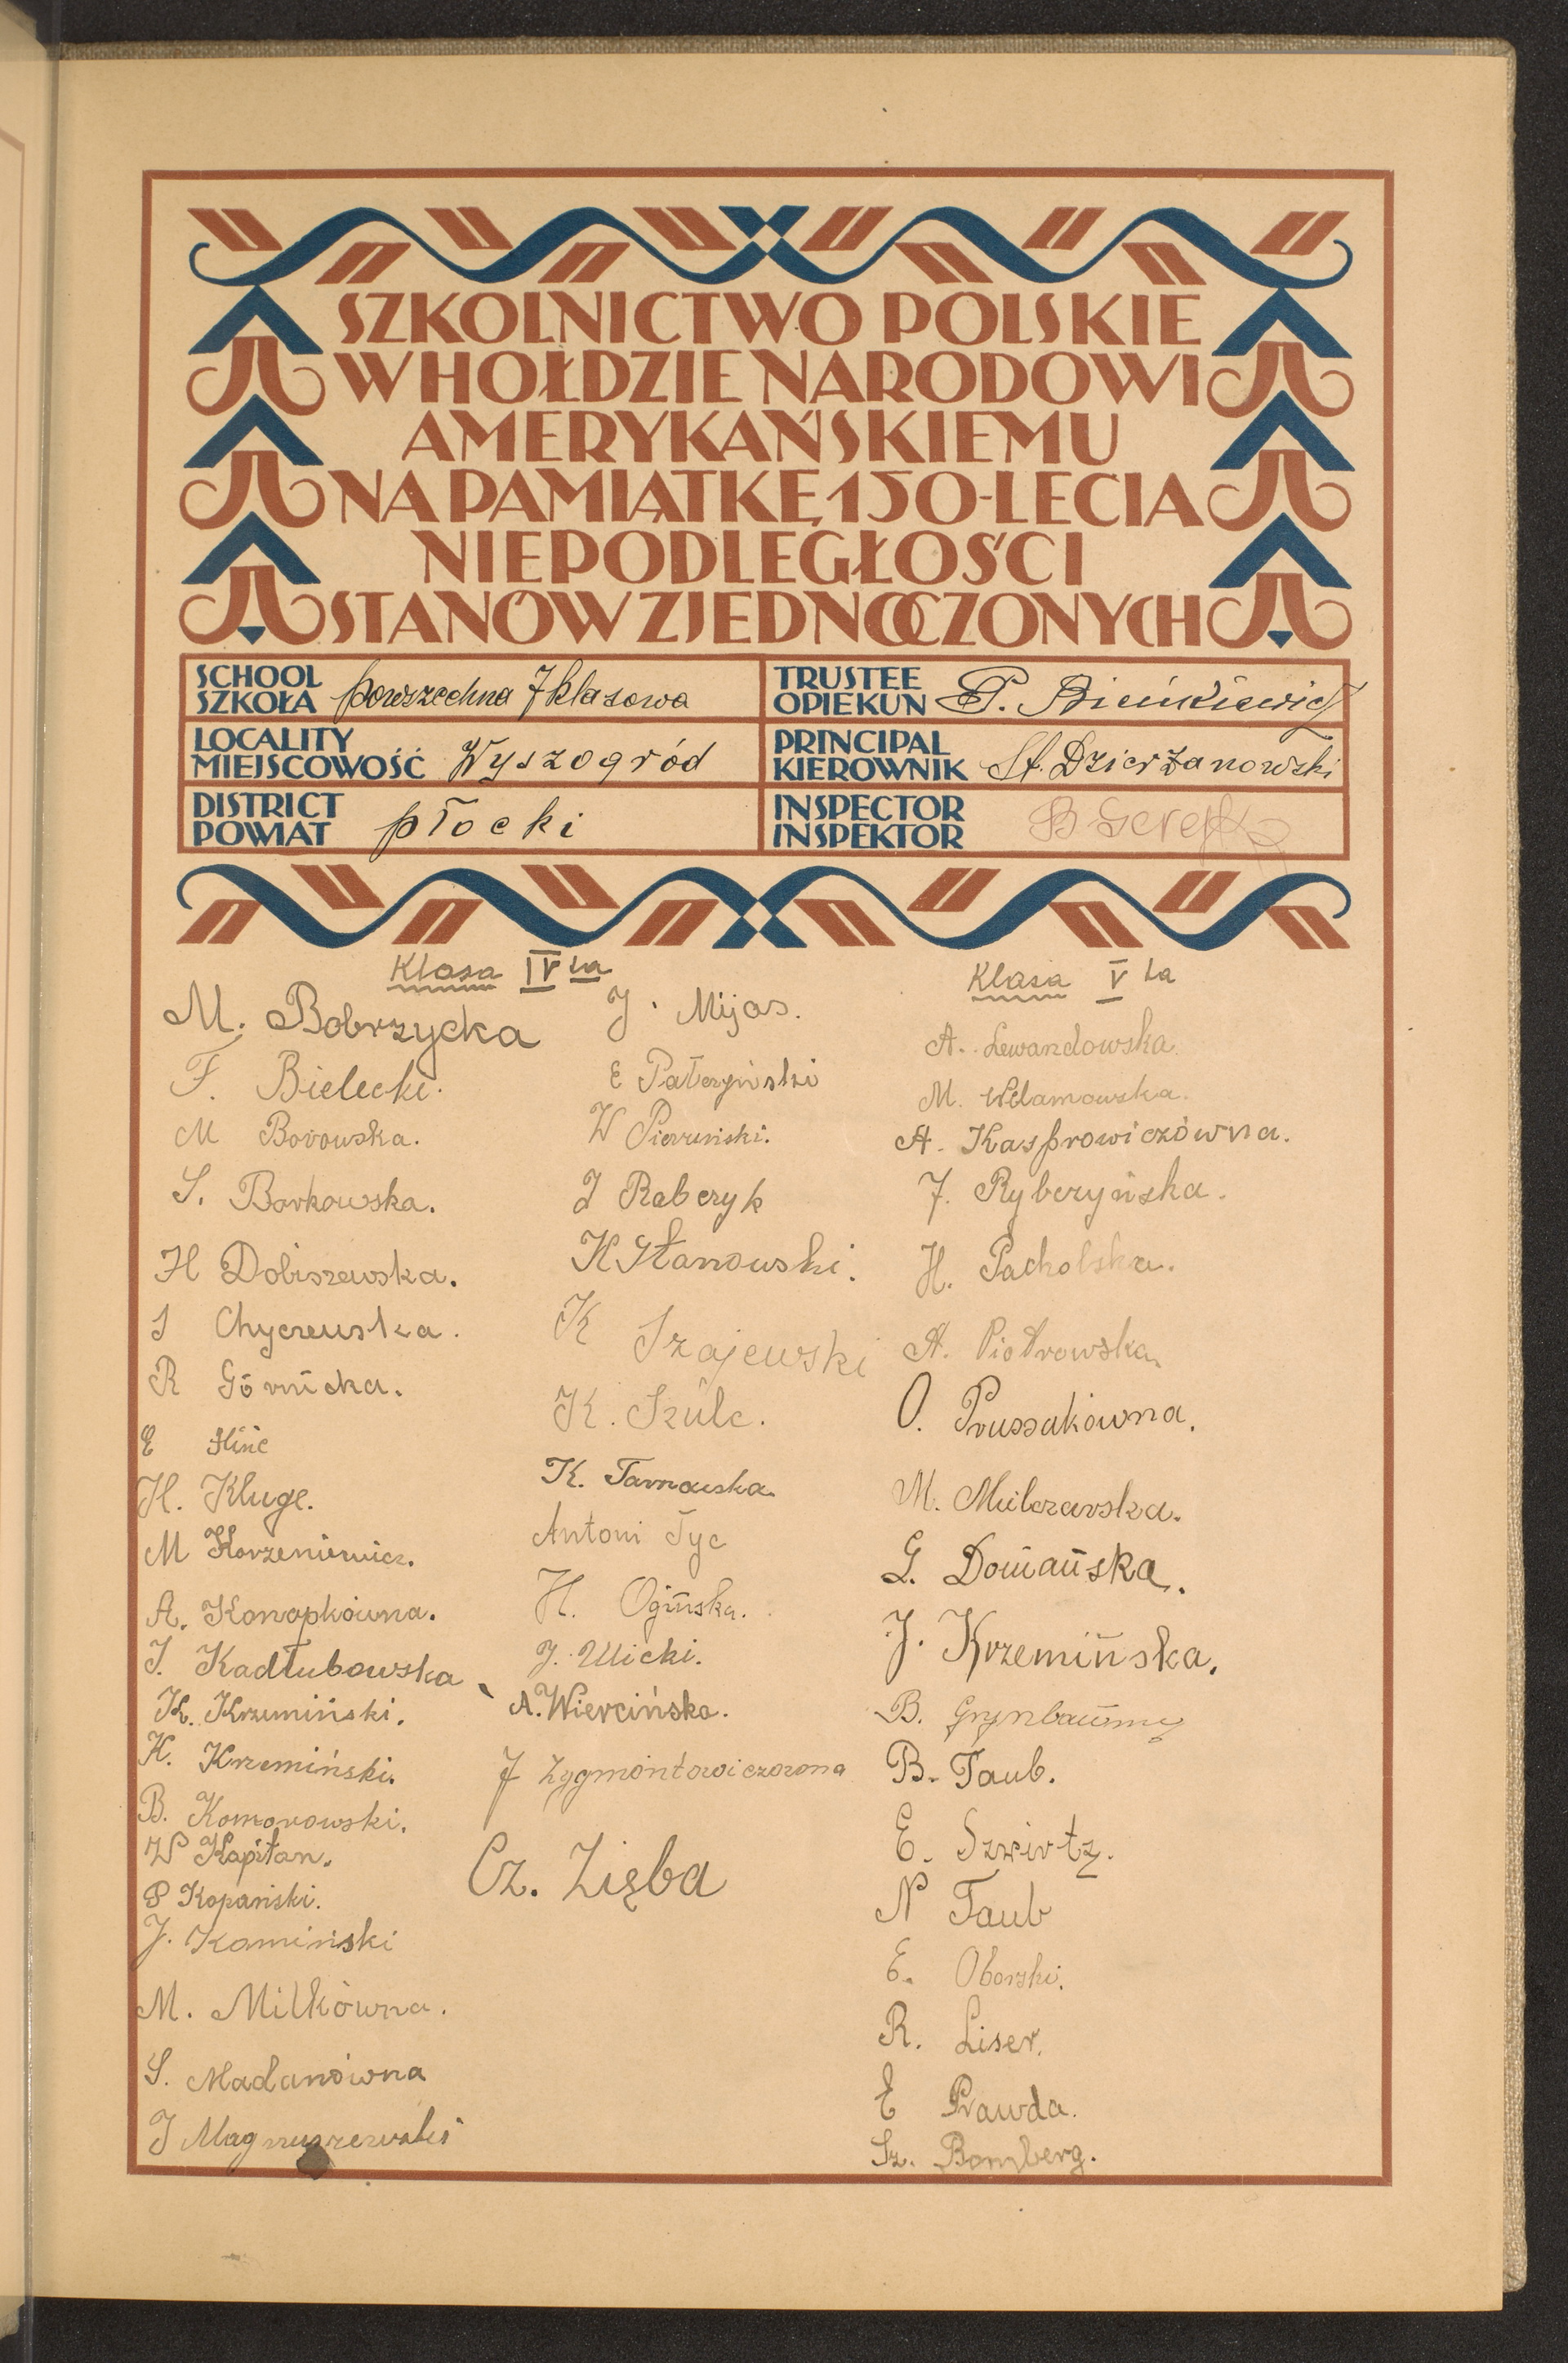 SZKOLNICTWO POLSKIE
W HOŁDZIE NARODOWI
AMERYKAŃSKIEMU
NA PAMIĄTKĘ 150-LECIA
NIEPODLEGŁOŚCI
STANÓW ZJEDNOCZONYCH
SCHOOL
SZKOŁA powszechna 7 klasowa
LOCALITY
MIEJSCOWOŚĆ Wyszogród
DISTRICT
POWIAT płocki
TRUSTEE
OPIEKUN P. Bieńkiewicz
PRINCIPAL
KIEROWNIK St. Dzierżanowski
INSPECTOR
INSPEKTOR B
Klasa IV ta
M. Bobrzycka
F. Bielecki.
M Borowska.
S. Borkowska.
H Dobiszewska.
S Chyczewska.
R Górnicka.
E Hinc
H. Kluge.
M Korzeniewicz.
A. Konopkówna.
J. Kadłubowska
K. Krzemiński.
K. Krzemiński.
B. Komorowski.
W Kapitan.
P Kopański.
J. Kamiński
M. Milkówna.
S. Madanówna
J Magnuszewski
J. Mijas.
E Pałczyński
W Pierzuński.
J Rabczyk
K Stanowski.
K Szajewski
K. Szulc.
K. Tarnowska.
Antoni Tyc
H. Ogińska.
J. Ulicki.
A. Wiercińska.
J Zygmontowiczowna
Cz. Zięba
Klasa V ta
A. Lewandowska.
M. Adamowska.
A. Kasprowiczówna.
J. Rybczyńska.
H. Pacholska.
A. Piotrowska.
O. Prussakówna.
M. Milczarska.
G. Domańska.
J. Krzemińska.
B. Grynbaum
B. Taub.
E. Szwirtz.
N Taub
E. Oborski.
R. Liser.
E Prawda.
Sz. Bomberg.